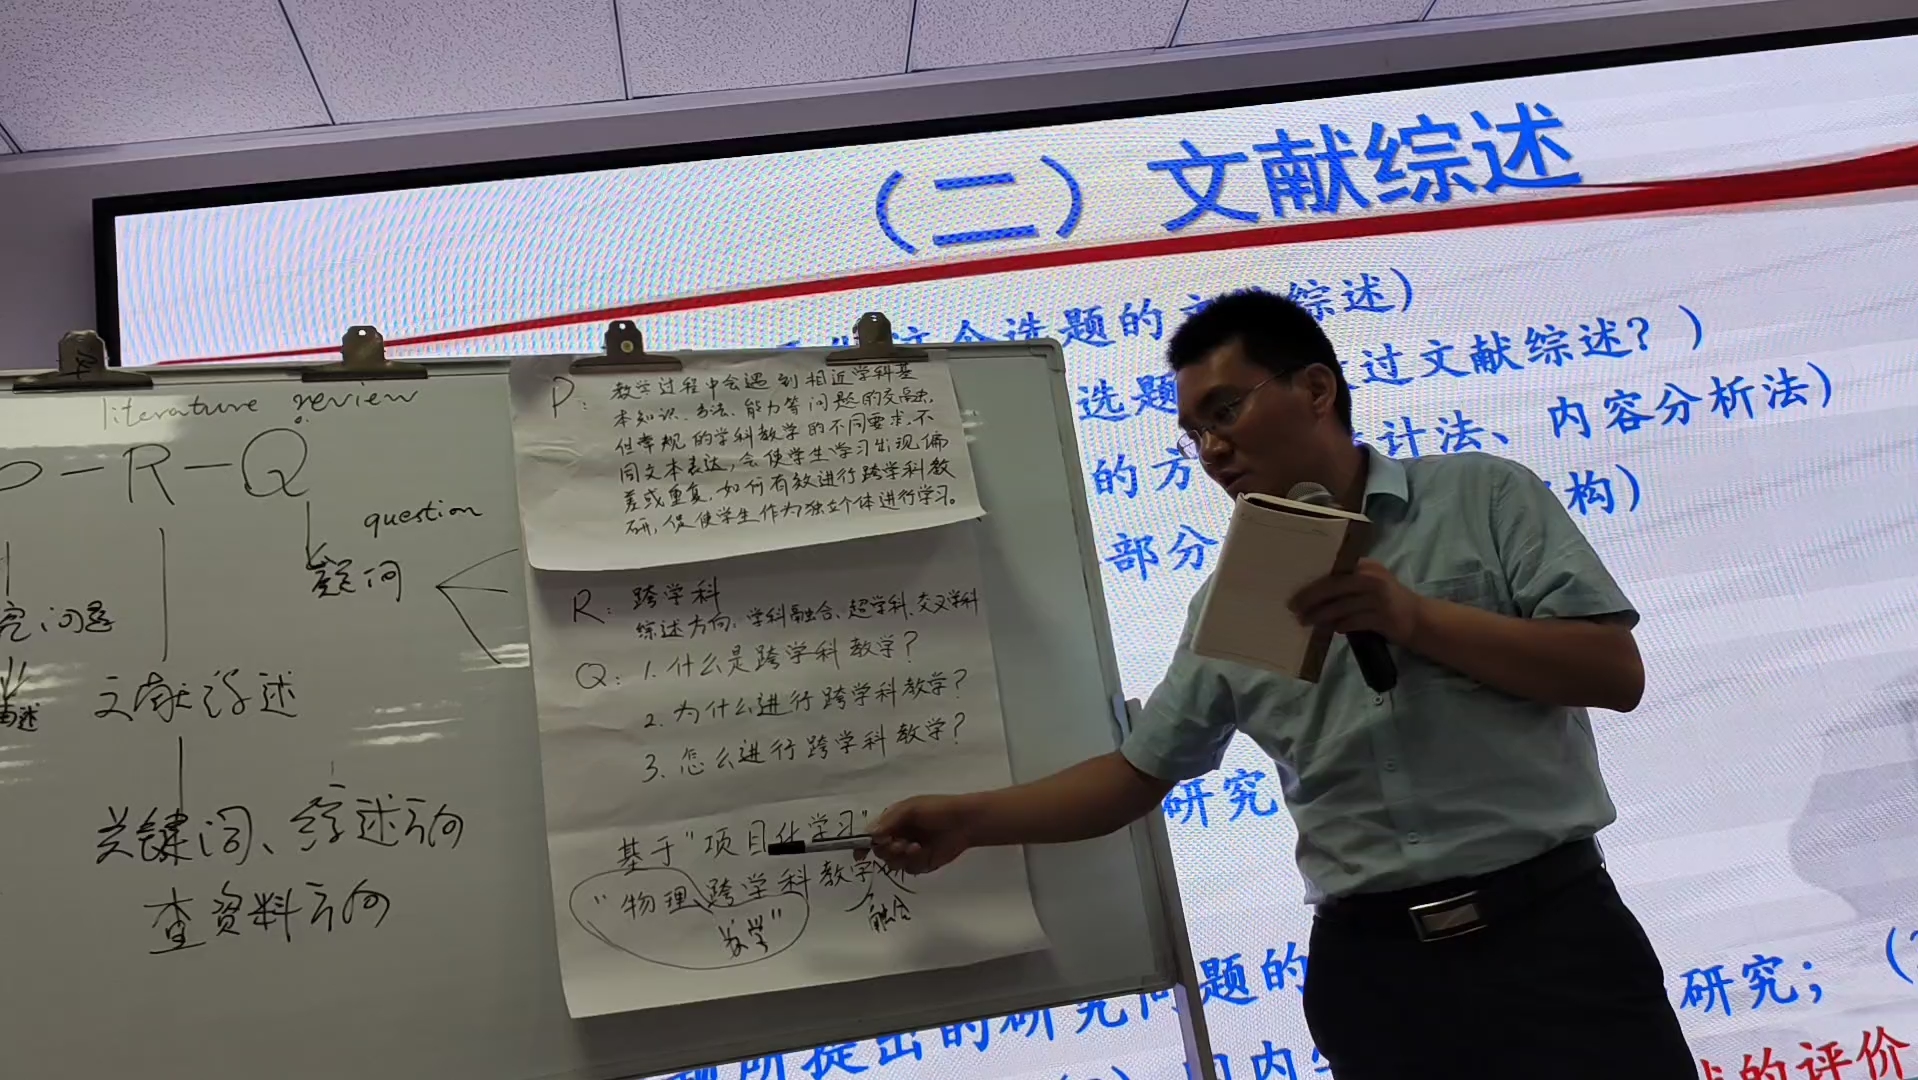 （二）文献综述
个选题的
综述）
选题
过文献综述？）
的方
计法、内容分析法）
部分
构）
研究
题的
研究；
所提出的研究问
国内
的评价
literature review
P-R-Q
question
疑问
究问题
文献综述
关键词、综述方向
查资料方向
P：教学过程中会遇到相近学科基
本知识、方法、能力等问题的交融，
但常规的学科教学的不同要求，不
同文本表达，会使学生学习出现偏
差或重复，如何有效进行跨学科教
研，促使学生作为独立个体进行学习。
R：跨学科
综述方向：学科融合、超学科、交叉学科
Q：1. 什么是跨学科教学？
2. 为什么进行跨学科教学？
3. 怎么进行跨学科教学？
基于“项目化学习”
“物理跨学科教学研
数学”
融合